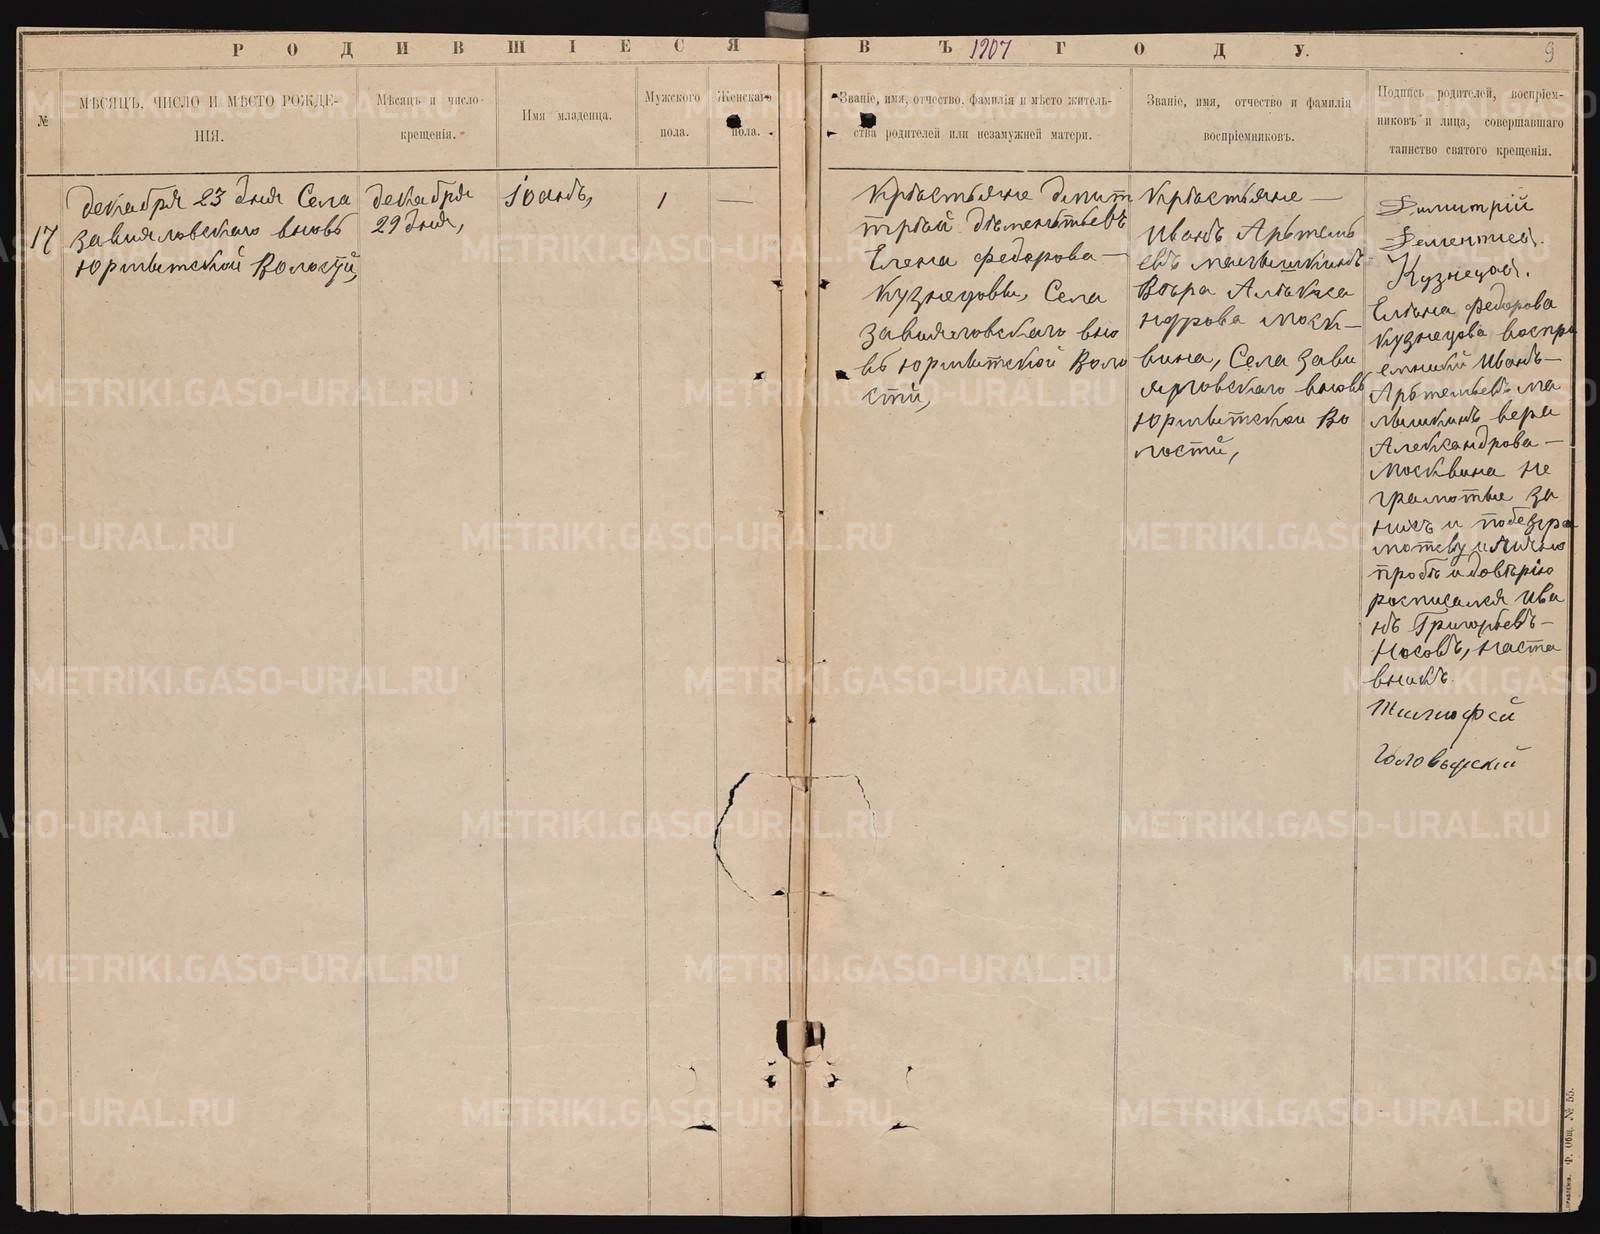 РОДИВШІЕСЯ ВЪ 1907 ГОДУ.
9
№
МѢСЯЦЪ, ЧИСЛО И МѢСТО РОЖДЕ-
НІЯ.
Мѣсяцъ и число
крещенія.
Имя младенца.
Мужского
пола.
Женскаго
пола.
Званіе, имя, отчество, фамилія и мѣсто житель-
ства родителей или незамужней матери.
Званіе, имя, отчество и фамилія
воспріемниковъ.
Подпись родителей, воспріем-
никовъ и лица, совершавшаго
таинство святого крещенія.
17
декабря 23 дня Села
завияловскаго вновь
юрмытской Волостй,
декабря
29 дня,
Іоанъ,
1
—
Крѣстьяне Дмит
трѣй Дѣментьевъ
Елена федорова —
Кузнецовы, Села
завияловскаго вно
вь юрмытской Воло
стй,
Крѣстьяне —
Иванъ Арьтемь
евъ малышкинъ
Вѣра Алѣкса
ндрова моск—
вина, Села зави
яловскаго вновь
юрмытской Во
лостй,
Димитрій
Дементьев.
Кузнецов.
Елѣна федорова
кузнецова воспри
емники Иванъ—
Арьтемьевъ ма
лышкинъ вера
Александрова —
москвина не
грамотные за
нихъ и побезгра
мотству и личною
прозбѣ и довѣрію
росписался ива
нъ Григорьевъ—
Носовъ, наста
вникъ
Тимофей
METRIKI.GASO-URAL.RU
Ф. Общ. № 55.